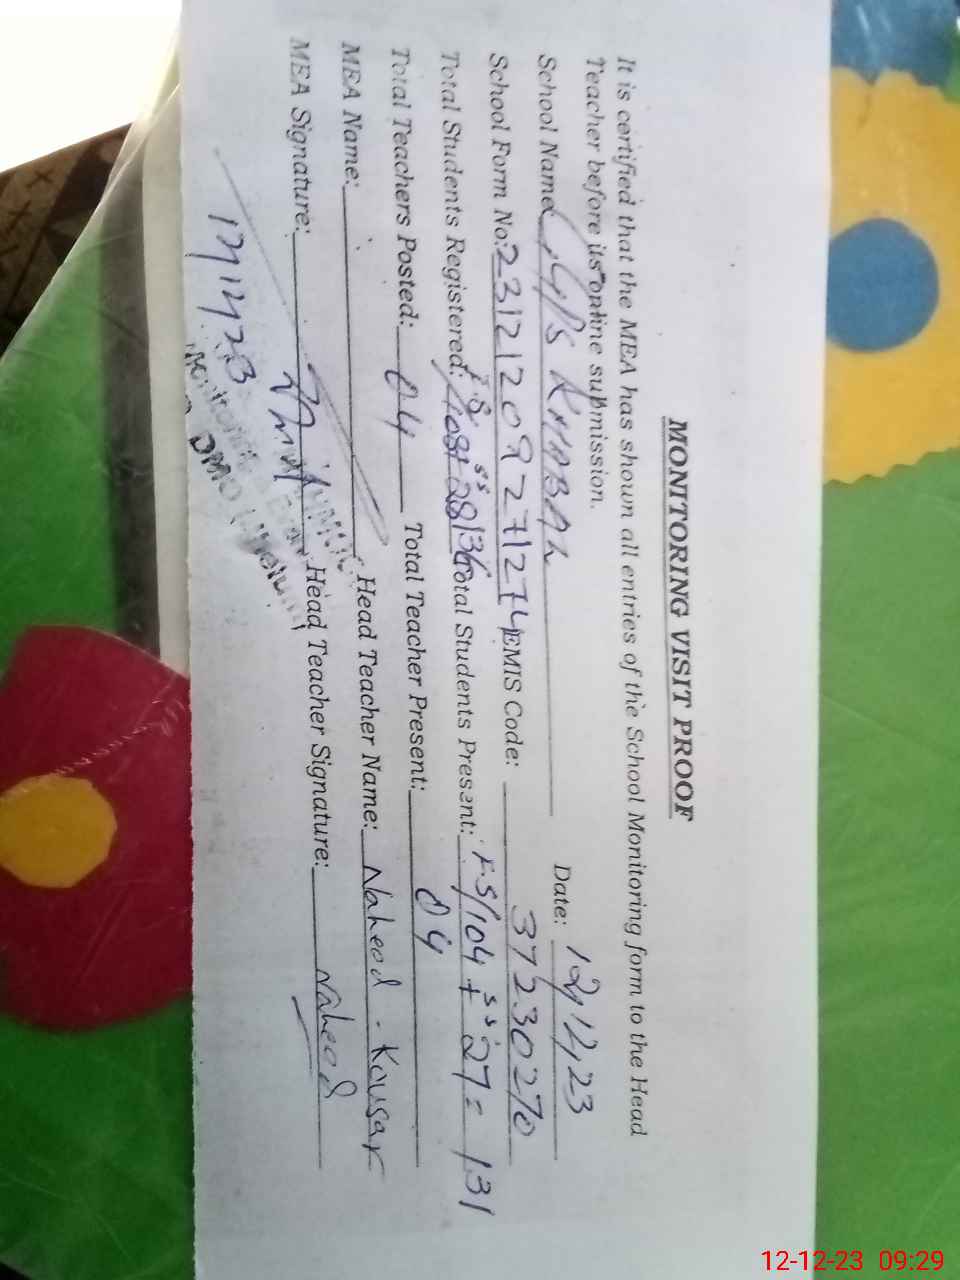 MONITORING VISIT PROOF
It is certified that the MEA has shown all entries of the School Monitoring form to the Head
Teacher before its online submission.
School Name G/PS KHABAL Date: 12/12/23
School Form No: 23121209271274 EMIS Code: 37230270
Total Students Registered: F.S/108+ SS 28/136 Total Students Present: F.S/104 + SS 27 = 131
Total Teachers Posted: 04 Total Teacher Present: 04
MEA Name: Head Teacher Name: Naheed . Kousar
MEA Signature: Head Teacher Signature: Naheed
12-12-23 09:29